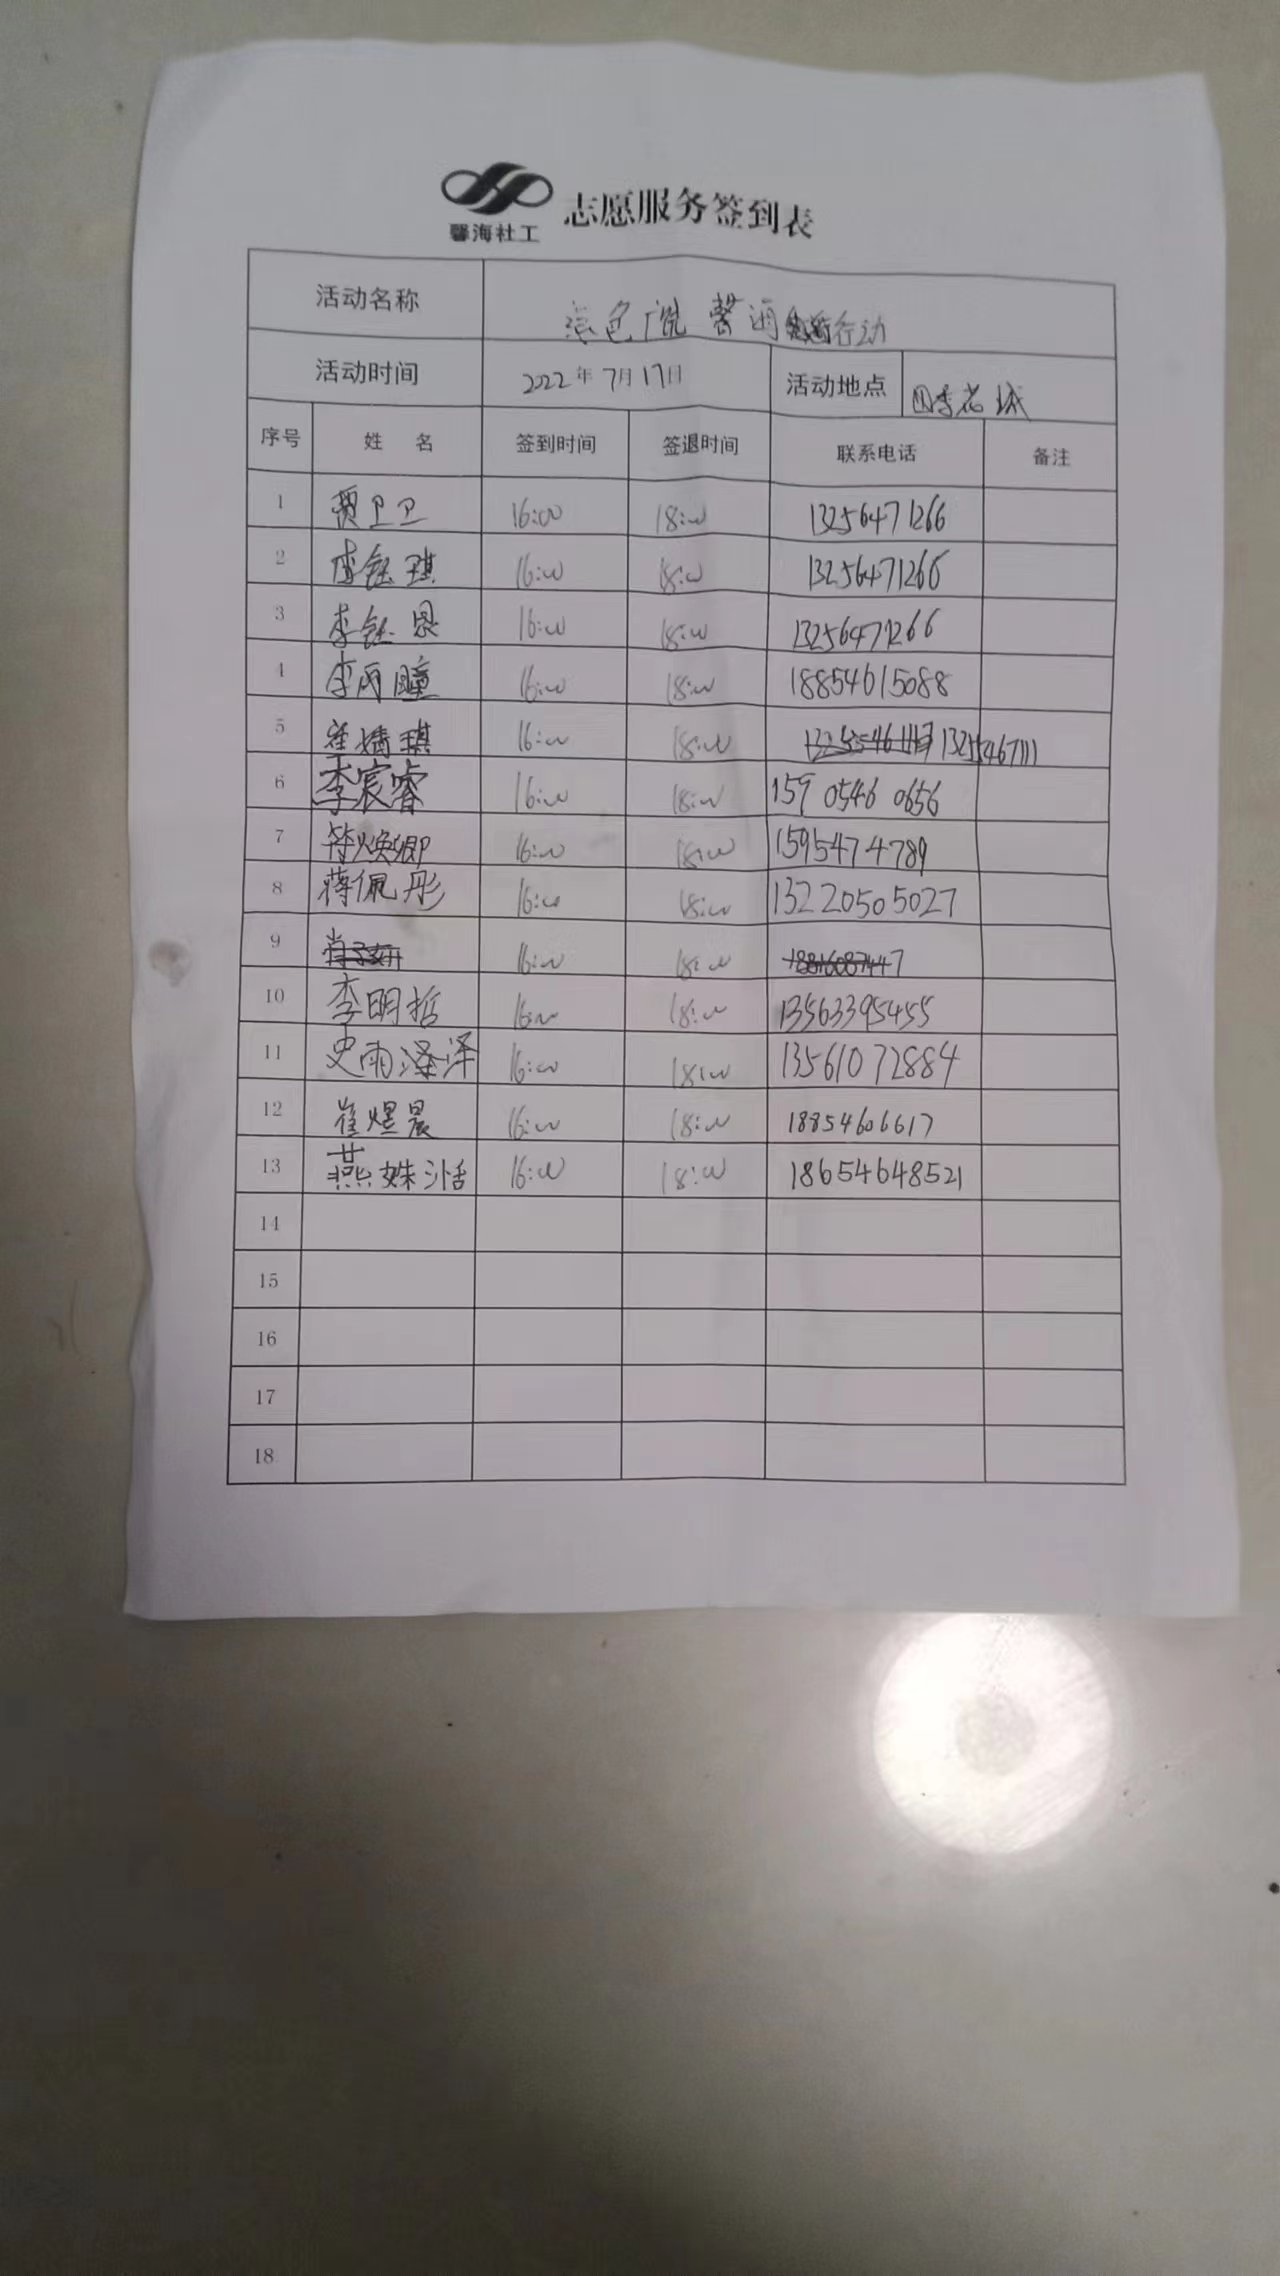 馨海社工
志愿服务签到表
活动名称 行动
活动时间 2022年7月17日 活动地点 四季花城
序号 姓 名 签到时间 签退时间 联系电话 备注
1 贾卫卫 16:00 18:00 13256471266
2 李钰琪 16:00 18:00 13256471266
3 李钰恩 16:00 18:00 13256471266
4 李雨瞳 16:00 18:00 18854615088
5 崔婧琪 16:00 18:00
6 李宸睿 16:00 18:00 159 0546 0656
7 符焕卿 16:00 18:00 1595474789
8 蒋佩彤 16:00 18:00 13220505027
9 16:00 18:00
10 李明哲 16:00 18:00 13563395455
11 史雨泽 16:00 18:00 13561072884
12 崔煜晨 16:00 18:00 18854606617
13 燕姝湉 16:00 18:00 18654648521
14
15
16
17
18